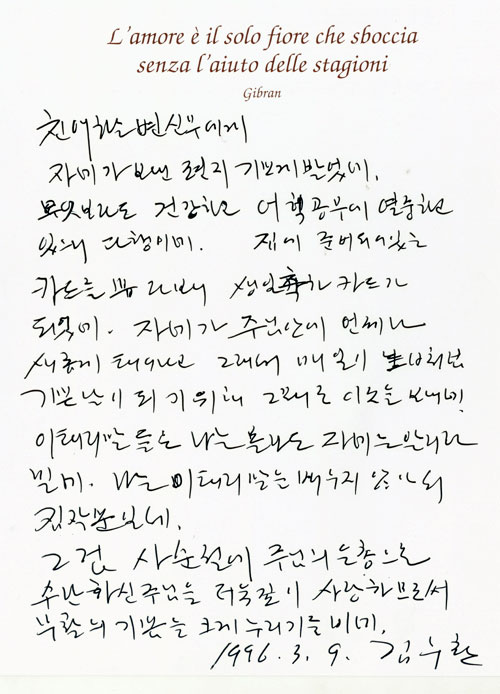 L'amore è il solo fiore che sboccia
senza l'aiuto delle stagioni
Gibran
친애하는 변신부에게
자네가 보낸 편지 기쁘게 받았네.
무엇보다도 건강하고 어학공부에 열중하고
있으니 다행이네. 집에 준비되어있는
카드를 뽑다보니 생일축하 카드가
되었네. 자네가 주님안에 언제나
새롭게 태어나고 그래서 매일이
기쁜 날이 되기 위해 그대로 이것을 보내네.
이태리말 뜻은 나는 몰라도 자네는 알리라
믿네. 나는 이태리말은 배우지 않아서
짐작뿐일세.
그럼, 사순절에 주님의 은총으로
수난하신 주님을 더욱 깊이 사랑하므로써
부활의 기쁨을 크게 누리기를 비네.
1996. 3. 9. 김수환